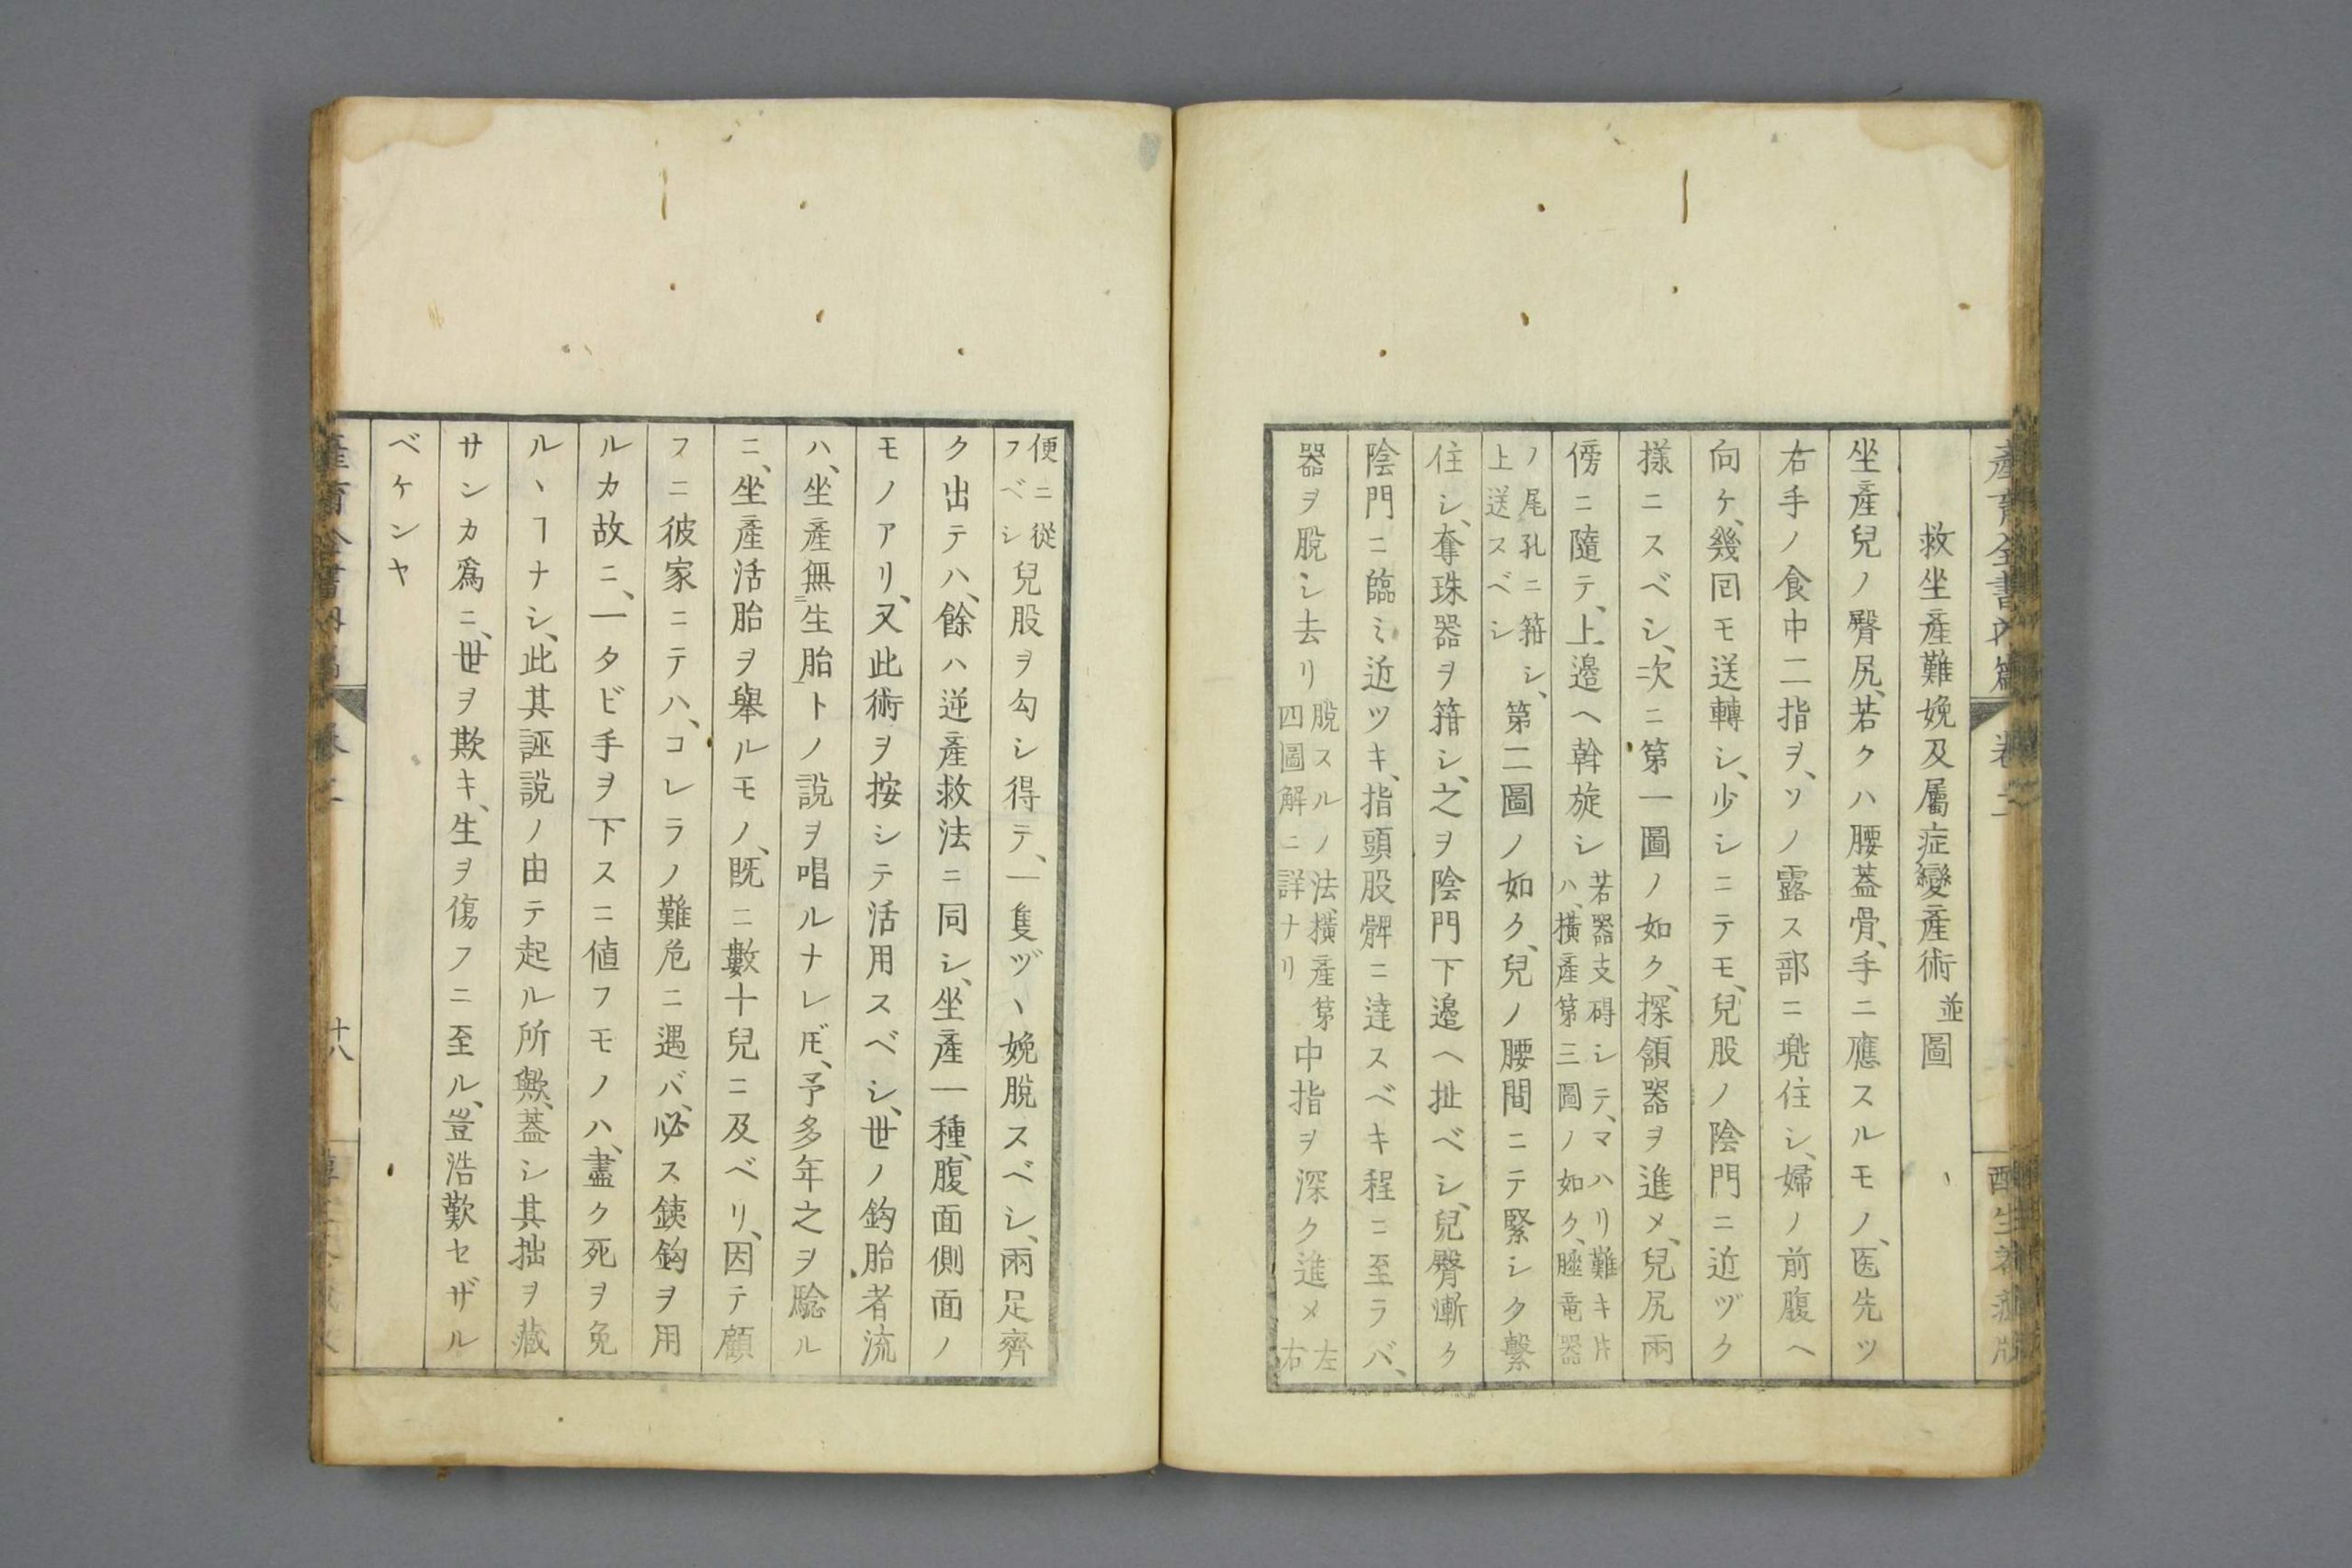 產育全書內篇 卷二
救坐產難娩及屬症變產術並圖
坐產兒ノ臀尻、若クハ腰蓋骨、手ニ應スルモノ、医先ツ
右手ノ食中二指ヲ、ソノ露ス部ニ兠住シ、婦ノ前腹ヘ
向ケ、幾囘モ送轉シ、少シニテモ、兒股ノ陰門ニ近ヅク
樣ニスベシ、次ニ第一圖ノ如ク、探頷器ヲ進メ、兒尻兩
傍ニ隨テ、上邉ヘ斡旋シ若器支碍シテ、マハリ難キ片ハ、橫產第三圖ノ如ク、
ノ尾孔ニ箝シ、上送スベシ第二圖ノ如ク、兒ノ腰間ニテ緊シク繫
住シ、奪珠器ヲ箝シ、之ヲ陰門下邉ヘ扯ベシ、兒臀漸ク
陰門ニ臨ミ近ツキ、指頭股髀ニ達スベキ程ニ至ラバ、
器ヲ脫シ去リ脫スルノ法、橫產第四圖解ニ詳ナリ中指ヲ深ク進メ左右
便ニ從フベシ兒股ヲ勾シ得テ、一隻ヅヽ娩脫スベシ、兩足齊
ク出テハ、餘ハ逆產救法ニ同シ、坐產一種、腹面側面ノ
モノアリ、又此術ヲ按シテ活用スベシ、世ノ鈎胎者流
ハ、坐產無二生胎一トノ說ヲ唱ルナレ𪜈、予多年之ヲ驗ル
ニ、坐產活胎ヲ舉ルモノ、既ニ數十兒ニ及ベリ、因テ顧
フニ彼家ニテハ、コレラノ難危ニ遇バ、必ス銕鈎ヲ用
ルカ故ニ、一タビ手ヲ下スニ値フモノハ、盡ク死ヲ免
ルヽヿナシ、此其誣說ノ由テ起ル所歟、蓋シ其拙ヲ藏
サンカ爲ニ、世ヲ欺キ、生ヲ傷フニ至ル、豈浩歎セザル
ベケンヤ
卷二 廿八